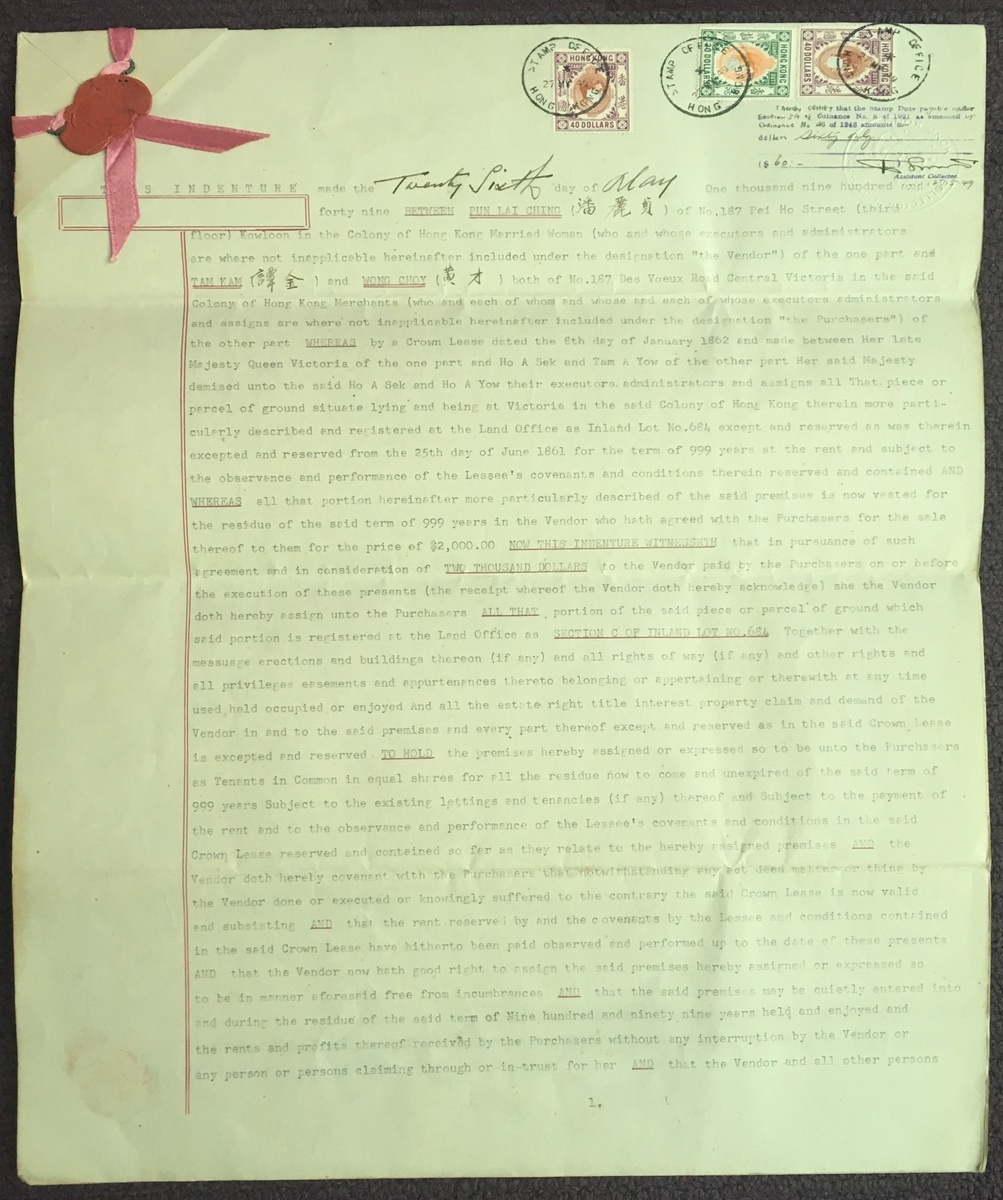 STAMP OFFICE
HONG KONG
HONG KONG
40 DOLLARS
STAMP OFFICE
HONG KONG
20 DOLLARS
HONG KONG
40 DOLLARS
HONG KONG
STAMP OFFICE
HONG KONG
I hereby certify that the Stamp Duty payable under
Section of Ordinance No. 8 of 1921 as amended by
Ordinance No 36 of 1948 amounts to
dollars Sixty only
$ 60:-
Assistant Collector
THIS INDENTURE made the Twenty Sixth day of May One thousand nine hundred and
forty nine BETWEEN PUN LAI CHING (潘麗貞) of No.187 Pei Ho Street (third
floor) Kowloon in the Colony of Hong Kong Married Woman (who and whose executors and administrators
are where not inapplicable hereinafter included under the designation "the Vendor") of the one part and
TAM KAM (譚金) and WONG CHOY (黃才) both of No.187 Des Voeux Road Central Victoria in the said
Colony of Hong Kong Merchants (who and each of whom and whose and each of whose executors administrators
and assigns are where not inapplicable hereinafter included under the designation "the Purchasers") of
the other part WHEREAS by a Crown Lease dated the 8th day of January 1862 and made between Her late
Majesty Queen Victoria of the one part and Ho A Sek and Tam A Yow of the other part Her said Majesty
demised unto the said Ho A Sek and Ho A Yow their executors administrators and assigns all That piece or
parcel of ground situate lying and being at Victoria in the said Colony of Hong Kong therein more parti-
cularly described and registered at the Land Office as Inland Lot No.684 except and reserved as was therein
excepted and reserved from the 25th day of June 1861 for the term of 999 years at the rent and subject to
the observance and performance of the Lessee's covenants and conditions therein reserved and contained AND
WHEREAS all that portion hereinafter more particularly described of the said premises is now vested for
the residue of the said term of 999 years in the Vendor who hath agreed with the Purchasers for the sale
thereof to them for the price of $2,000.00 NOW THIS INDENTURE WITNESSETH that in pursuance of such
agreement and in consideration of TWO THOUSAND DOLLARS to the Vendor paid by the Purchasers on or before
the execution of these presents (the receipt whereof the Vendor doth hereby acknowledge) she the Vendor
doth hereby assign unto the Purchasers ALL THAT portion of the said piece or parcel of ground which
said portion is registered at the Land Office as SECTION C OF INLAND LOT NO.684 Together with the
messuage erections and buildings thereon (if any) and all rights of way (if any) and other rights and
all privileges easements and appurtenances thereto belonging or appertaining or therewith at any time
used held occupied or enjoyed And all the estate right title interest property claim and demand of the
Vendor in and to the said premises and every part thereof except and reserved as in the said Crown Lease
is excepted and reserved TO HOLD the premises hereby assigned or expressed so to be unto the Purchasers
as Tenants in Common in equal shares for all the residue now to come and unexpired of the said term of
999 years Subject to the existing lettings and tenancies (if any) thereof And Subject to the payment of
the rent and to the observance and performance of the Lessee's covenants and conditions in the said
Crown Lease reserved and contained so far as they relate to the hereby assigned premises AND the
Vendor doth hereby covenant with the Purchasers that notwithstanding any act deed matter or thing by
the Vendor done or executed or knowingly suffered to the contrary the said Crown Lease is now valid
and subsisting AND that the rent reserved by and the covenants by the Lessee and conditions contained
in the said Crown Lease have hitherto been paid observed and performed up to the date of these presents
AND that the Vendor now hath good right to assign the said premises hereby assigned or expressed so
to be in manner aforesaid free from incumbrances AND that the said premises may be quietly entered into
and during the residue of the said term of Nine hundred and ninety nine years held and enjoyed and
the rents and profits thereof received by the Purchasers without any interruption by the Vendor or
any person or persons claiming through or in trust for her AND that the Vendor and all other persons
1.